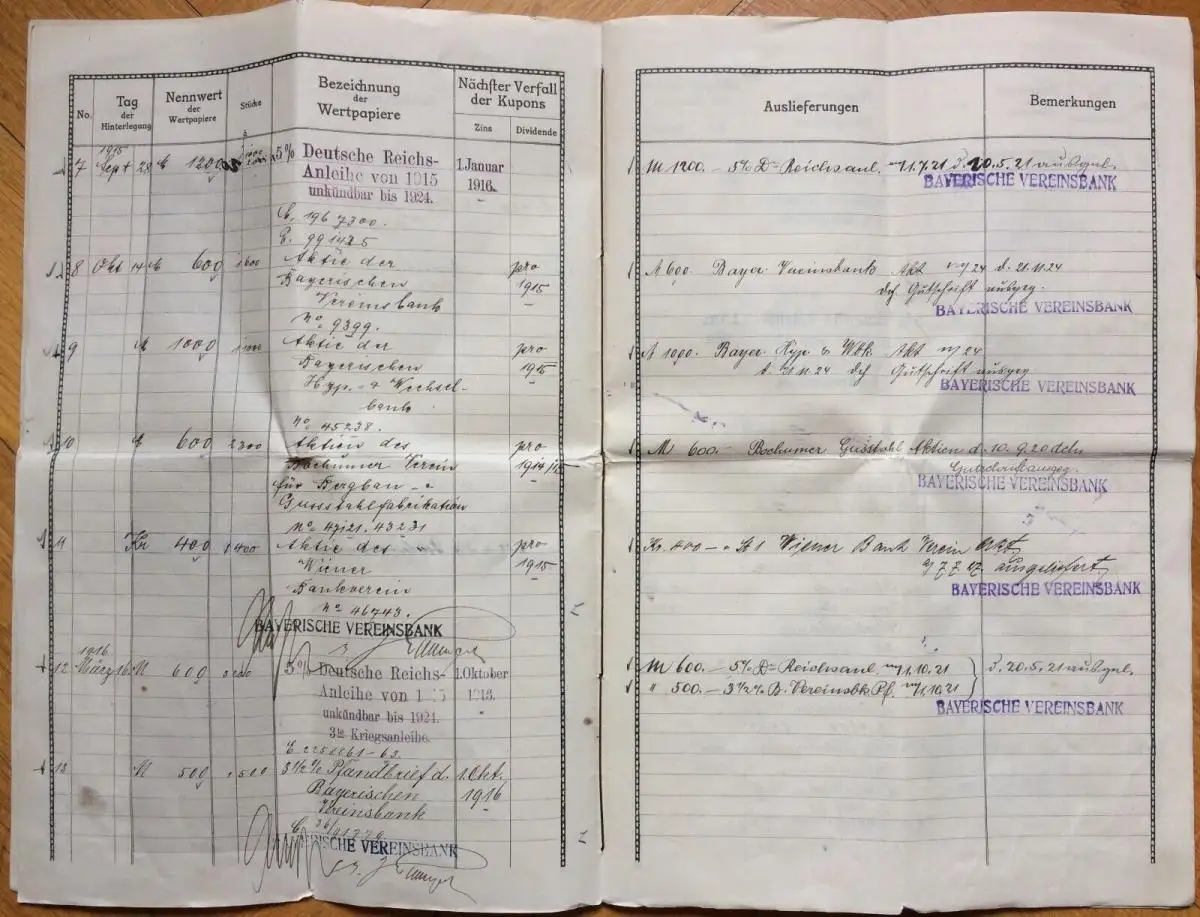 No.
Tag
der
Hinterlegung
Nennwert
der
Wertpapiere
Stücke
Bezeichnung
der
Wertpapiere
Nächster Verfall
der Kupons
Zins
Dividende
1915
7 Sept 28 M 1200 5% Deutsche Reichs- 1. Januar
Anleihe von 1915 1916.
unkündbar bis 1924.
196 7300.
8 Okt 14 M 600 1 600 Aktie der pro
Bayerischen 1915
Vereinsbank
No 9399.
9 M 1000 1 1000 Aktie der pro
Bayerischen 1915
Hyp.- & Wechsel-
bank
No 45238.
10 M 600 2 300 Aktien des pro
Bochumer Verein 1914/15
für Bergbau- &
Gussstahlfabrikation
11 Kr 400 1 400 Aktie des pro
Wiener 1915
Bankverein
No 46743.
BAYERISCHE VEREINSBANK
1916
12 März 16 M 600 5% Deutsche Reichs- 1. Oktober
Anleihe von 1916.
unkündbar bis 1924.
3te Kriegsanleihe.
13 M 500 1 500 3 1/2 % Pfandbrief d. 1. Okt.
Bayerischen 1916
Vereinsbank
BAYERISCHE VEREINSBANK
Auslieferungen
Bemerkungen
M 1200.- 5% D= Reichsanl. 1.7.21 d. 20.5.21 ausgel.
BAYERISCHE VEREINSBANK
M 600. Bayer. Vereinsbank Akt 24 d. 21.11.24
dch Gutschrift ausgeg.
BAYERISCHE VEREINSBANK
M 1000. Bayer. Hyp. & Wbk Akt 24
11.24 dch Gutschrift ausgeg
BAYERISCHE VEREINSBANK
M 600.- Bochumer Gussstahl Aktien d. 10.9.20 dch
BAYERISCHE VEREINSBANK
Kr. 400 - 1 Wiener Bank Verein Akt
ausgeliefert
BAYERISCHE VEREINSBANK
M 600.- 5% D= Reichsanl. 1.10.21 d. 20.5.21 ausgel.
" 500.- 3 1/2 % B. Vereinsbk Pf. 1.10.21
BAYERISCHE VEREINSBANK